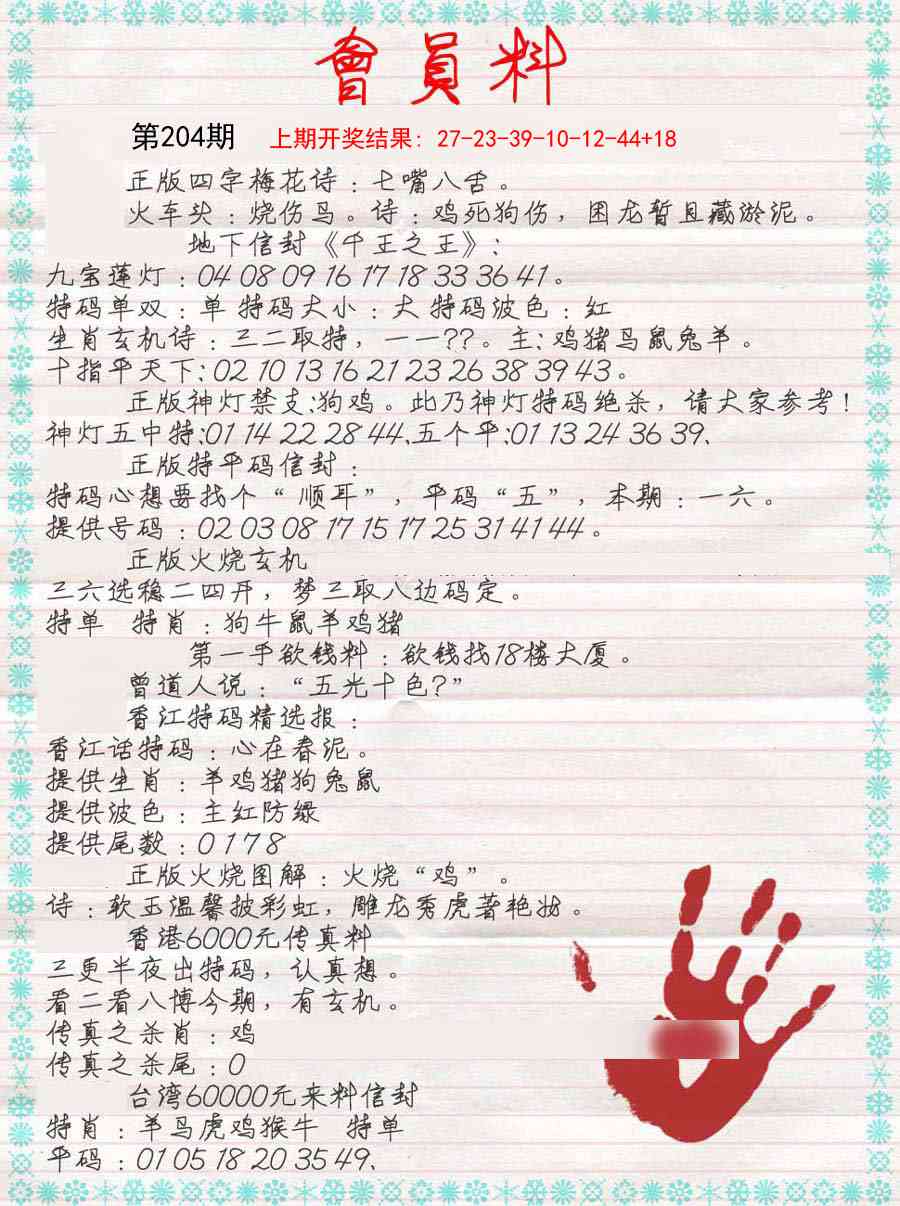 會員料
第204期 上期开奖结果：27-23-39-10-12-44+18
正版四字梅花诗：七嘴八舌。
火车头：烧伤鸟。诗：鸡死狗伤，困龙暂且藏淤泥。
地下信封《千王之王》：
九宝莲灯：04 08 09 16 17 18 33 36 41。
特码单双：单 特码大小：大 特码波色：红
生肖玄机诗：三二取特，一一??。主：鸡猪鸟鼠兔羊。
十指平天下：02 10 13 16 21 23 26 38 39 43。
正版神灯禁支:狗鸡。此乃神灯特码绝杀，请大家参考！
神灯五中特:01 14 22 28 44、五个平:01 13 24 36 39、
正版特平码信封：
特码心想要找个“顺耳”，平码“五”，本期：一六。
提供号码：02 03 08 17 15 17 25 31 41 44。
正版火烧玄机
三六选稳二四开，梦三取八边码定。
特单 特肖：狗牛鼠羊鸡猪
第一手欲钱料：欲钱找18楼大厦。
曾道人说：“五光十色?”
香江特码精选报：
香江话特码：心在春泥。
提供生肖：羊鸡猪狗兔鼠
提供波色：主红防绿
提供尾数：0 1 7 8
正版火烧图解：火烧“鸡”。
诗：软玉温馨披彩虹，雕龙秀虎著艳妆。
香港6000元传真料
三更半夜出特码，认真想。
看二看八博今期，有玄机。
传真之杀肖：鸡
传真之杀尾：0
台湾60000元来料信封
特肖：羊鸟虎鸡猴牛 特单
平码：01 05 18 20 35 49、